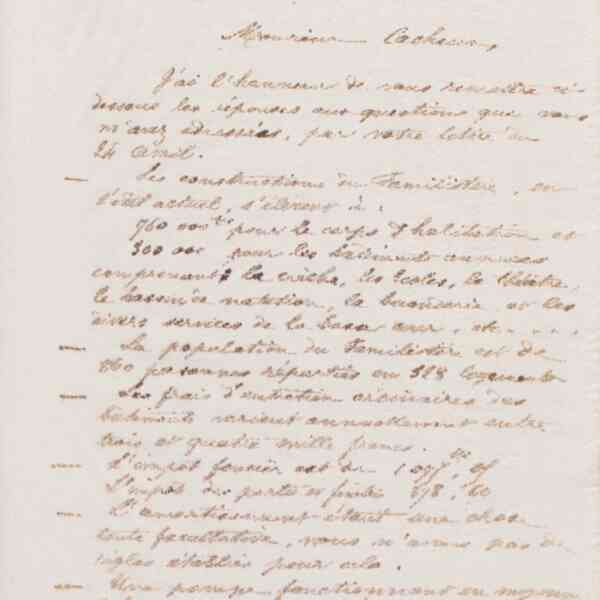 Monsieur Cacheux,
J'ai l'honneur de vous remettre ci-
dessous les réponses aux questions que vous
m'avez adressées, par votre lettre du
24 Avril.
— Les constructions du Familistère, en
l'état actuel, s'élèvent à :
760 000 frs pour le corps d'habitation et
300 000 pour les bâtiments annexes
comprenant la crèche, les écoles, le théâtre,
le bassin de natation, la buanderie et les
divers services de la basse cour, etc....
— La population du Familistère est de
860 personnes réparties en 328 logements
— Les frais d'entretien ordinaires des
bâtiments varient annuellement entre
trois et quatre mille francs.
— L'impôt foncier est de 1 077
L'impôt des portes et fenêtres 678, 60
— L'amortissement étant une chose
toute facultative, nous n'avons pas de
règles établies pour cela.
— Une pompe fonctionnant en moyenne